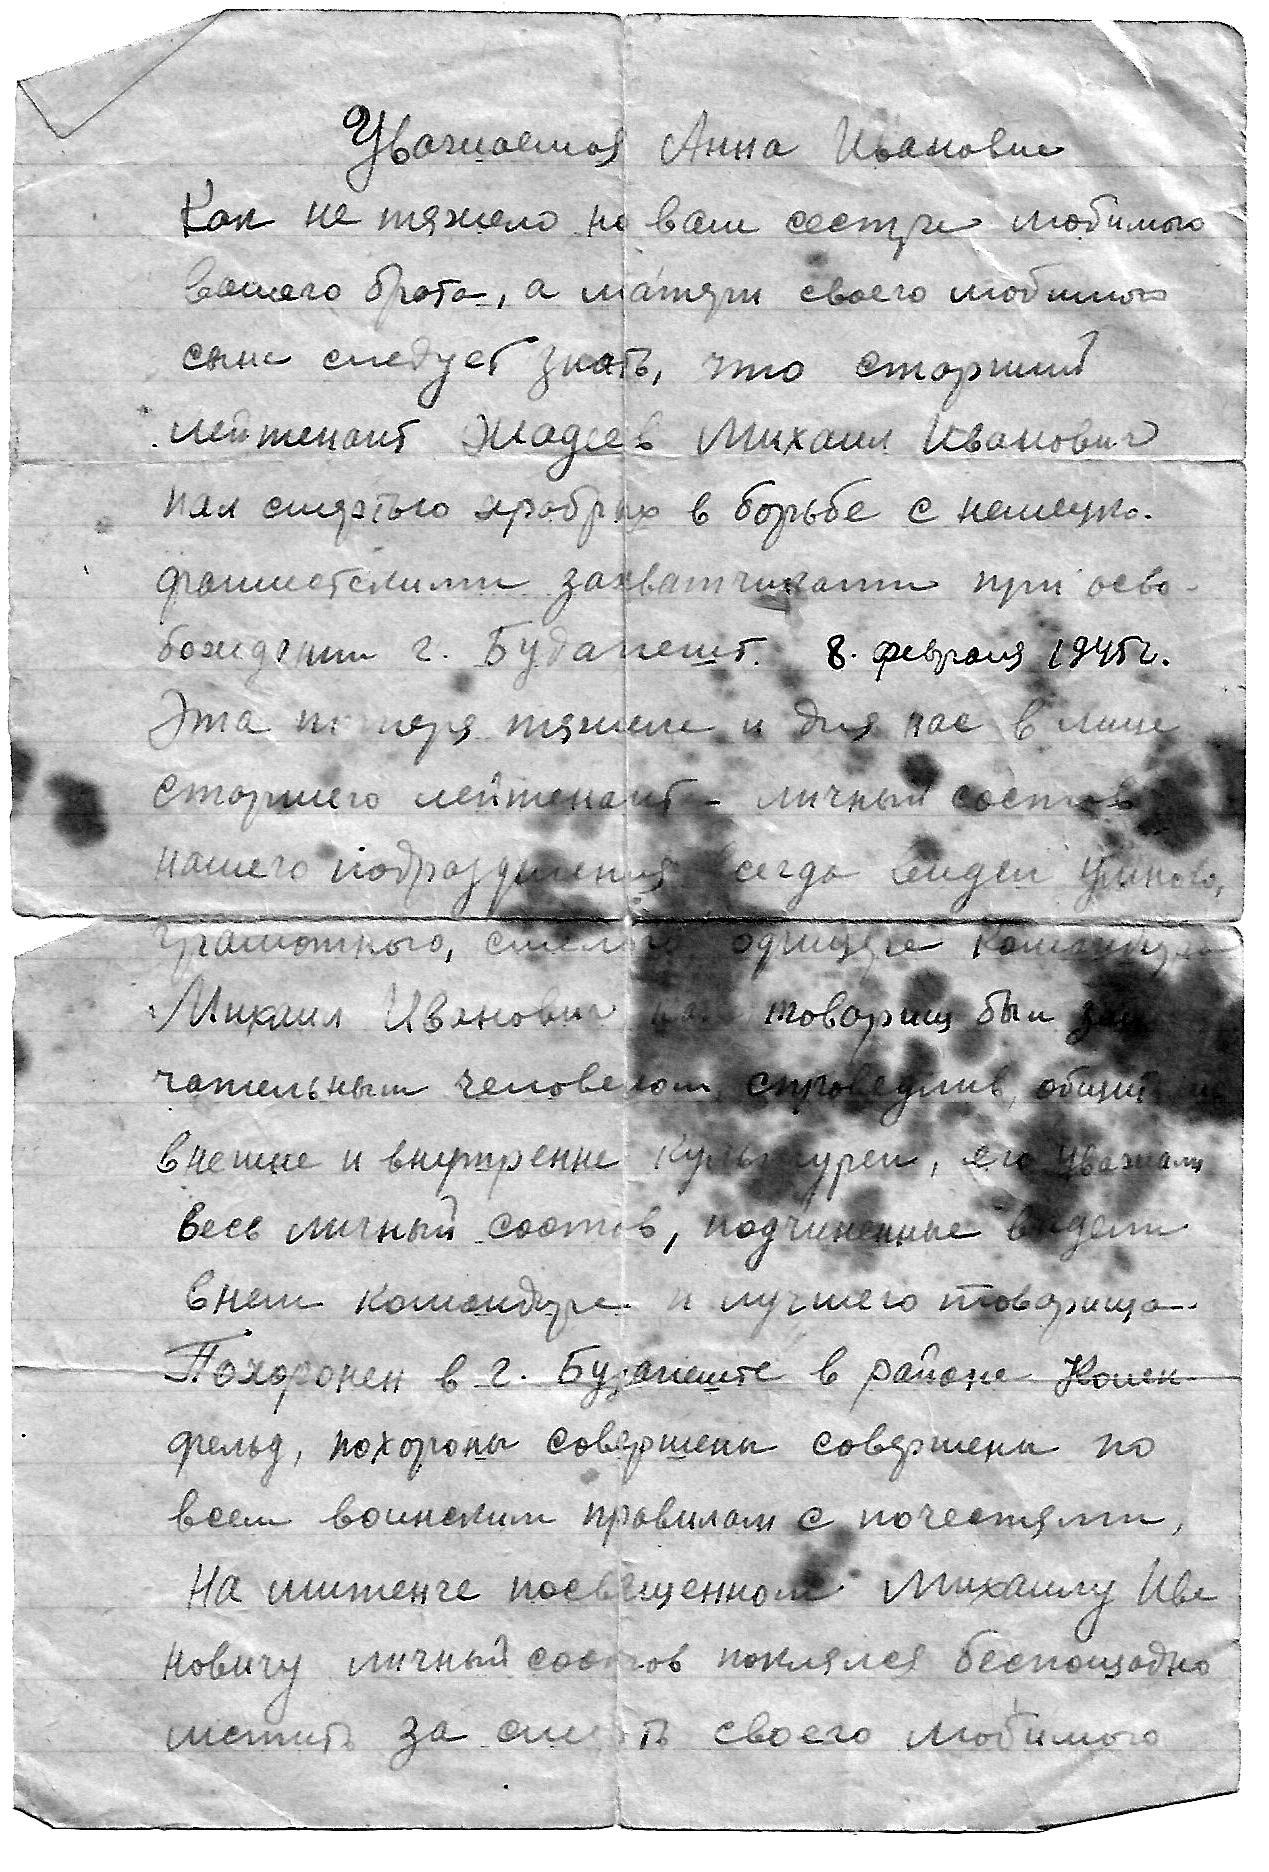 Уважаемая Анна Ивановна
Как не тяжело но вам сестре любимого
вашего брата, а матери своего любимого
сына следует знать, что старший
лейтенант Жадеев Михаил Иванович
пал смертью храбрых в борьбе с немецко-
фашистскими захватчиками при осво-
бождении г. Будапешт. 8. февраля 1945 г.
Эта потеря тяжела и для нас в лице
старшего лейтенанта - личный состав
нашего подразделения всегда видел умного,
грамотного, смелого офицера командира
Михаил Иванович как товарищ был заме
чательным человеком, справедлив,
внешне и внутренне культурен, его уважали
весь личный состав, подчиненные видели
в нем командира и лучшего товарища.
Похоронен в г. Будапеште в районе Келен-
фельд, похороны совершены совершены по
всем воинским правилам с почестями,
На митенге посвященном Михаилу Ива
новичу личный состав поклялся беспощадно
мстить за смерть своего любимого